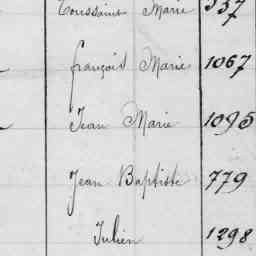 Toussaint Marie 537
françois Marie 1067
Jean Marie 1095
Jean Baptiste 779
Julien 1298